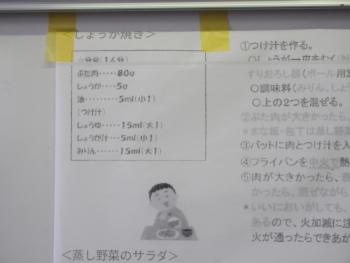 <しょうが焼き>
☆分量(1人分)
ぶた肉・・・・・80g
しょうが・・・・5g
油・・・・・・・・・5ml(小1)
(つけ汁)
しょうゆ・・・・・15ml(大1)
しょうが汁・・・5ml(小1)
みりん・・・・・15ml(大1)
<蒸し野菜のサラダ>
①つけ汁を作る。
○しょうが一皮をむく(
すりおろし器(ボール用
○調味料(みりん、しょ
○上の2つを混ぜる。
②ぶた肉が大きかったら、
*まな板・包丁は蒸し野菜
③バットに肉とつけ汁を入
④フライパンを中火で熱
⑤肉が大きかったら、
かったら、混ぜながら
*いいにおいがしても、
あるので、火加減に注
火が通ったらできあが